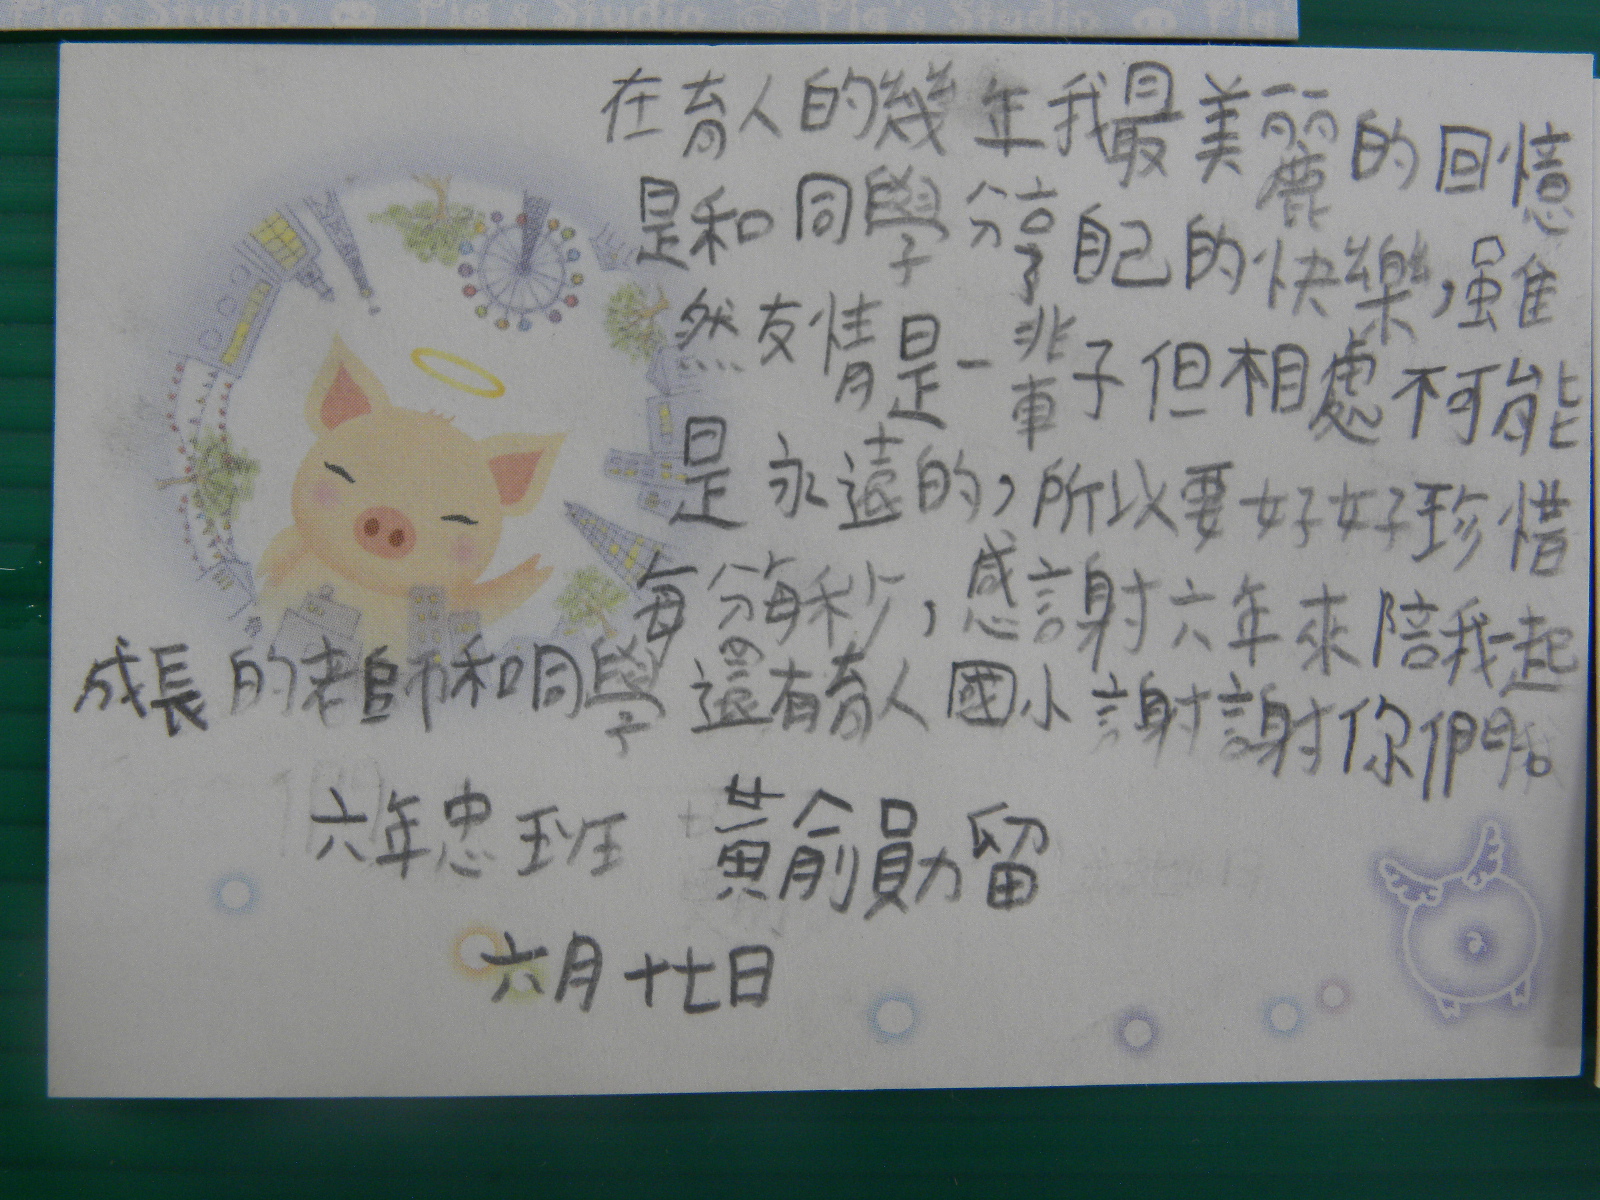 Pig's Studio Pig's Studio Pig's Studio Pig'
在育人的幾年我最美麗的回憶
是和同學分享自己的快樂，雖
然友情是一輩子但相處不可能
是永遠的，所以要好好珍惜
每分每秒，感謝六年來陪我一起
成長的老師和同學還有育人國小謝謝你們。
六年忠班 黃俞勛留
六月十七日